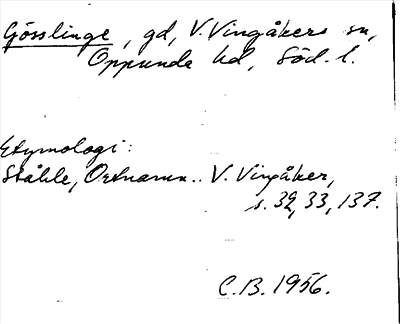 Gösslinge, gd, V. Vingåkers sn,
Oppunda hd, Söd. l.
Etymologi:
Ståhle, Ortnamn.. V. Vingåker,
s. 32, 33, 137.
C.B. 1956.